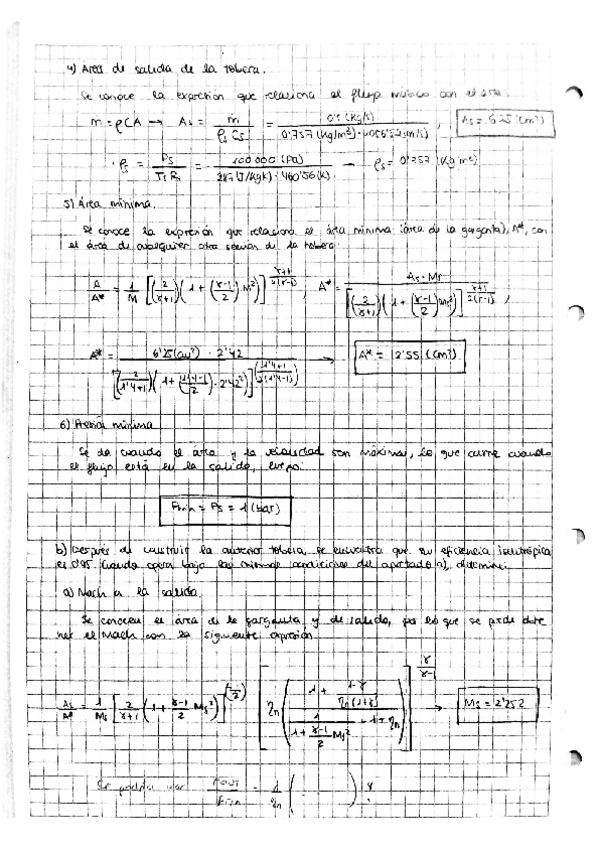 4) Área de salida de la tobera.
Se conoce la expresión que relaciona el flujo másico con el área:
ṁ = ρCA → As = ṁ / (ρs Cs) = 0'5 (kg/s) / (0'757 (kg/m³) · 1056'52 (m/s)), As = 6'25 (cm²)
· ρs = Ps / (Ts R) = 100 000 (Pa) / (287 (J/kgK) · 460'56 (K)) → ρs = 0'757 (kg/m³)
5) Área mínima.
Se conoce la expresión que relaciona el área mínima (área de la garganta), A*, con
el área de cualquier otra sección de la tobera:
A/A* = 1/M [(2/(γ+1)) (1 + ((γ-1)/2) M²)]^((γ+1)/(2(γ-1))) ; A* = As · Ms / [(2/(γ+1)) (1 + ((γ-1)/2) Ms²)]^((γ+1)/(2(γ-1))) ,
A* = 6'25 (cm²) · 2'42 / [(2/(1'4+1)) (1 + ((1'4-1)/2) · 2'42²)]^((1'4+1)/(2(1'4-1))) → A* = 2'55 (cm²)
6) Presión mínima
Se da cuando el área y la velocidad son máximas, lo que ocurre cuando
el flujo está en la salida, luego:
Pmin = Ps = 1 (bar)
b) Después de construir la anterior tobera, se encuentra que su eficiencia isentrópica
es 0'95. Cuando opera bajo las mismas condiciones del apartado a), determine:
a) Mach a la salida.
Se conocen el área de la garganta y de salida, por lo que se puede obte
ner el Mach con la siguiente expresión:
As/A* = 1/Ms [2/(γ+1) (1 + (γ-1)/2 Ms²)] → Ms = 2'252
Se podría usar